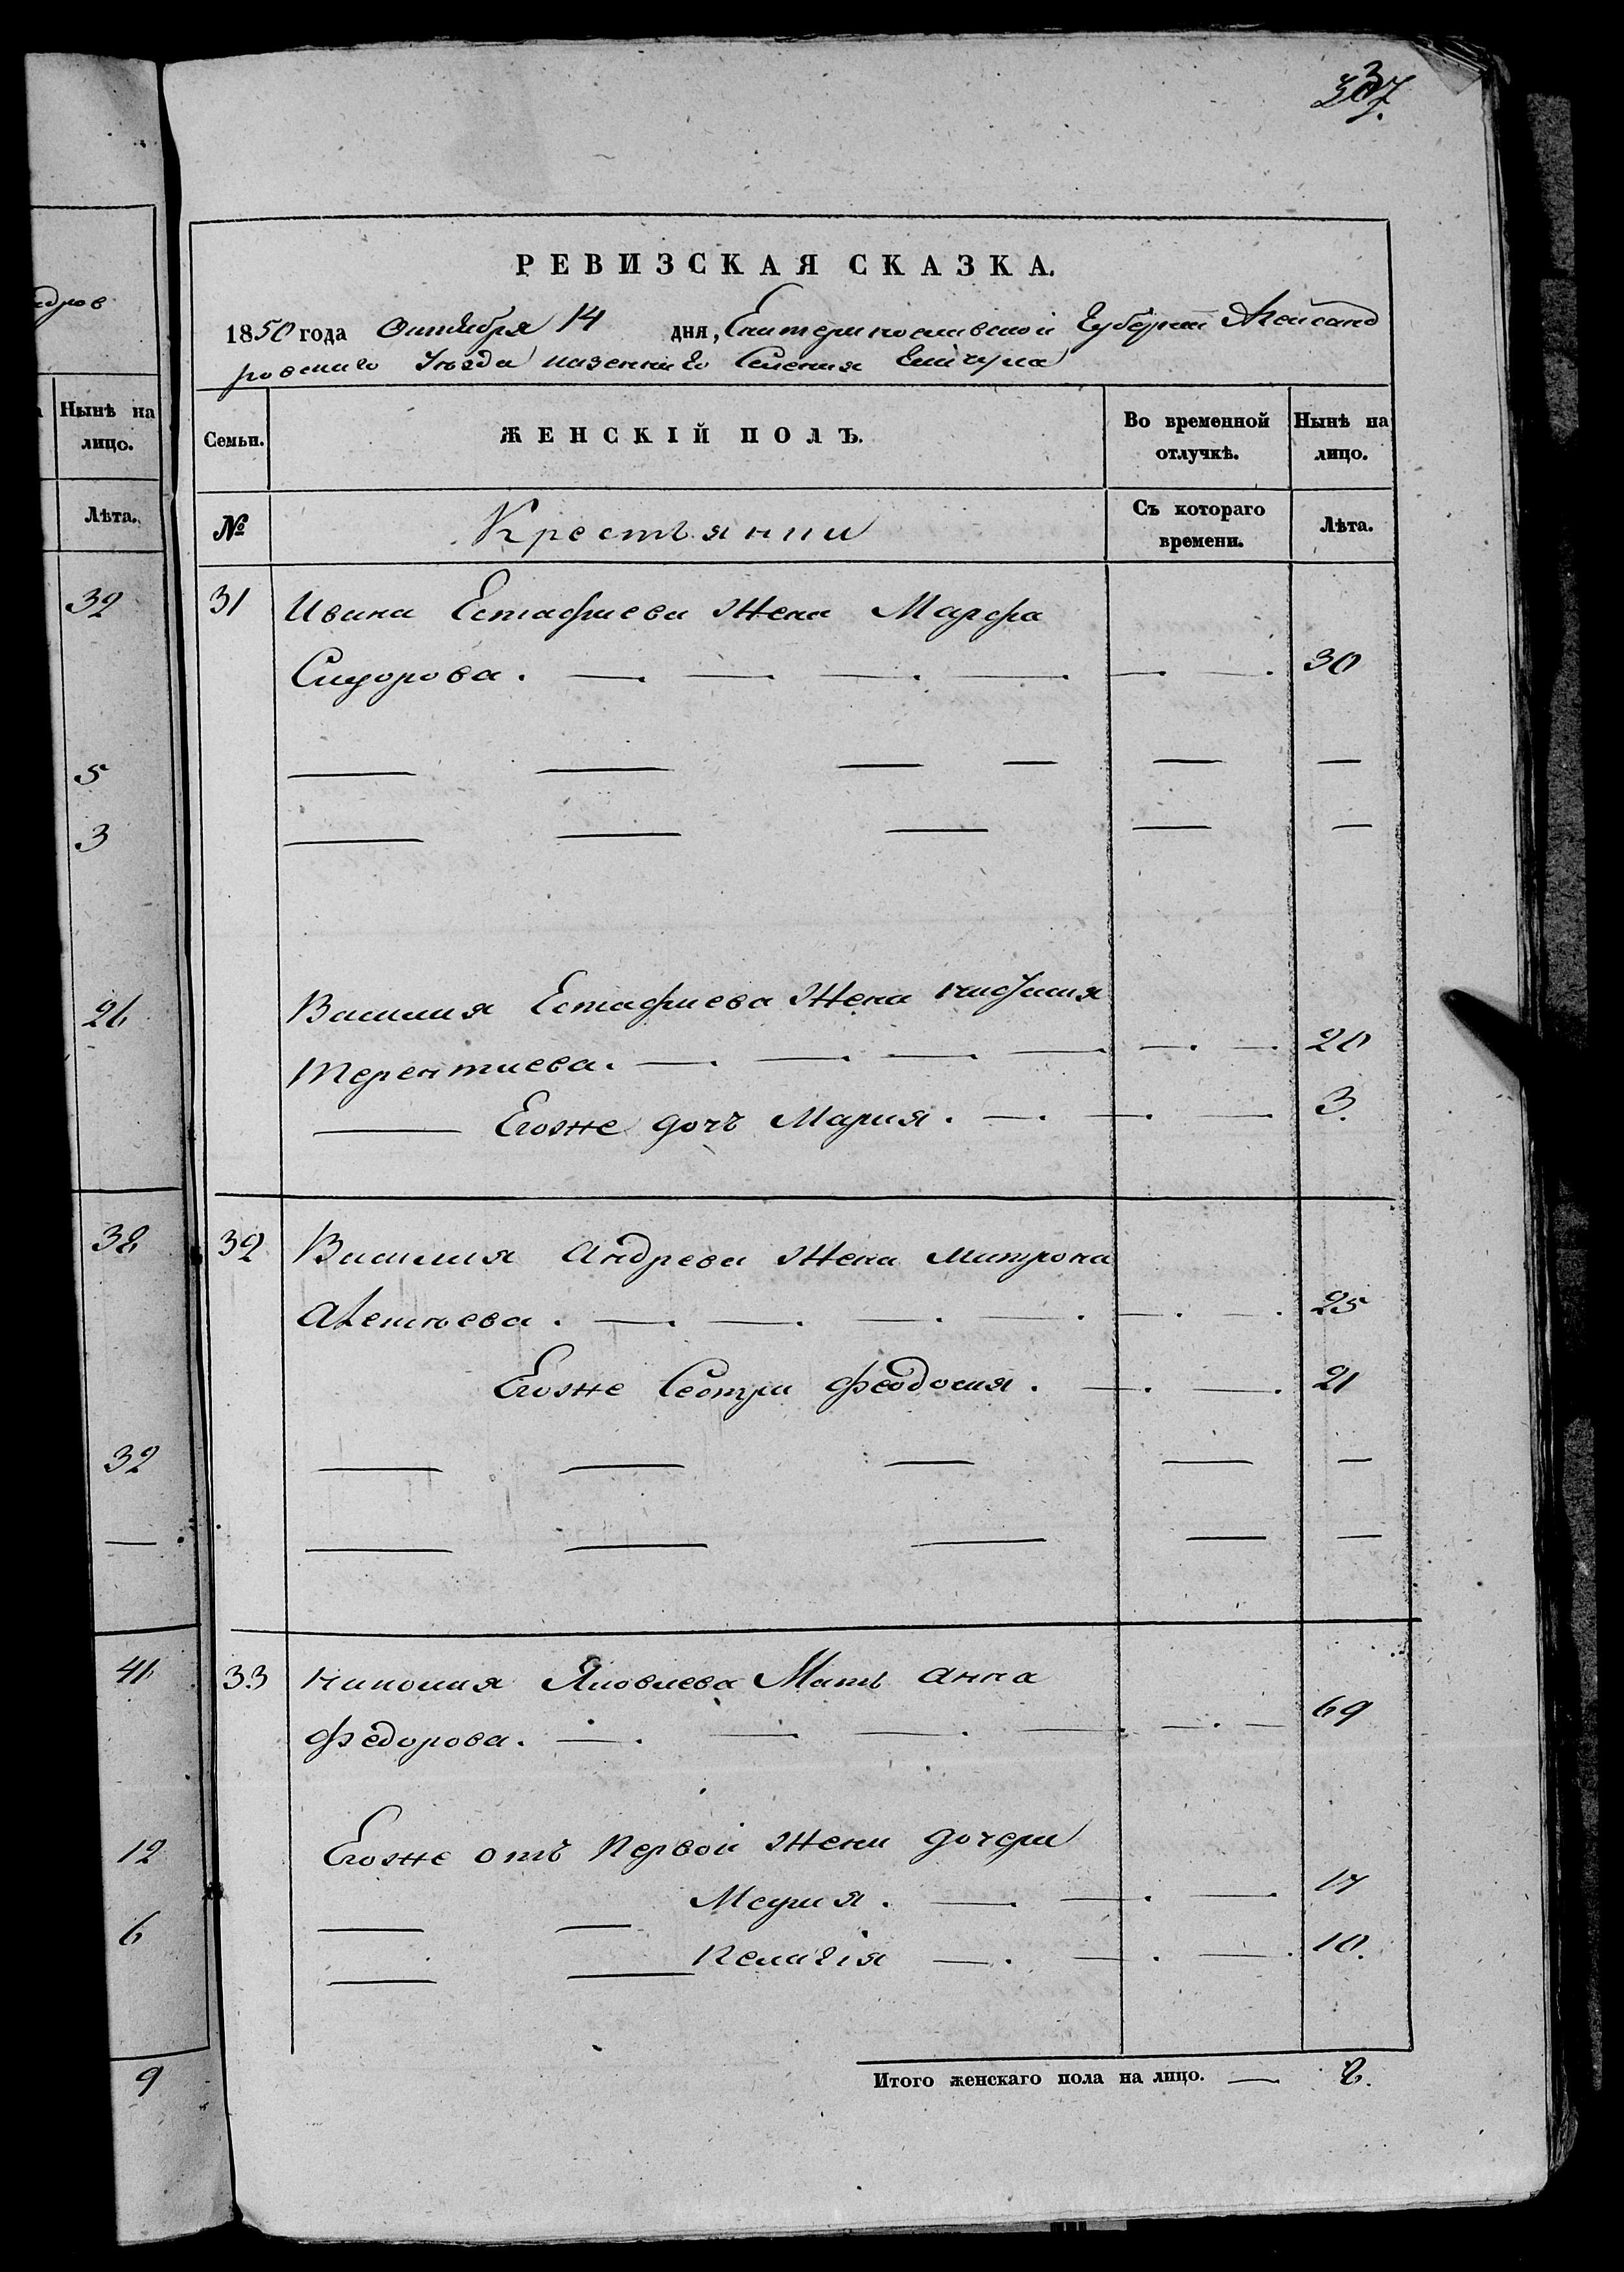 337
РЕВИЗСКАЯ СКАЗКА.
1850 года Октября 14 дня, Екатеринославской Губернии Александ
ровскаго Уезда казеннаго Селения
Семьи. ЖЕНСКІЙ ПОЛЪ. Во временной отлучкѣ. Нынѣ на лицо.
№ Крестьянки Съ котораго времени. Лѣта.
31 Ивана Естафиева Жена Марфа
Сидорова. 30
Василия Естафиева Жена
Терентиева. 20
Егоже дочь Мария. 3.
32 Василия Андреева Жена Матрона
Алексеева. 25
Егоже Сестра Феодосия. 21
33 Яковлева Мать Анна
Федорова. 69
Егоже отъ Первой Жены дочери
Мария. 17
Пелагія 10.
Итого женскаго пола на лицо. 8.
едров
Нынѣ на
лицо.
Лѣта.
32
5
3
26
38
32
41
12
6
9